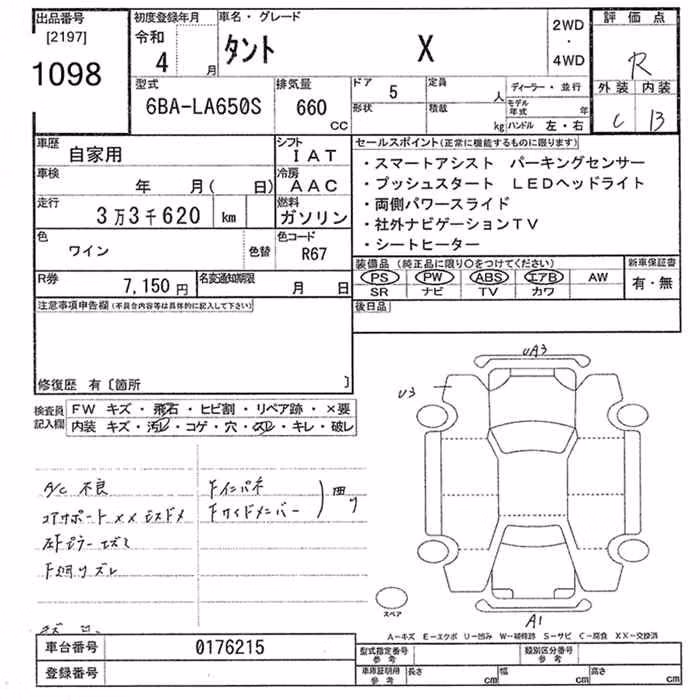 出品番号
[2197]
1098
初度登録年月
令和
4 月
車名・グレード
タント X
2WD
・
4WD
評価点
R
外装 内装
C B
型式
6BA-LA650S
排気量
660
CC
ドア 5
形状
定員 人
積載 kg
ディーラー・並行
モデル年式 年
ハンドル 左・右
車歴
自家用
シフト
IAT
車検
年 月( 日)
冷房
AAC
走行
3万3千620 km
燃料
ガソリン
色
ワイン
色替
色コード
R67
R券
7,150円
名変通知期限
月 日
セールスポイント(正常に機能するものに限ります)
・スマートアシスト パーキングセンサー
・プッシュスタート LEDヘッドライト
・両側パワースライド
・社外ナビゲーションTV
・シートヒーター
装備品(純正品に限り○をつけてください)
PS PW ABS エアB AW
SR ナビ TV カワ
新車保証書
有・無
注意事項申告欄(不具合内容等は具体的に記入して下さい)
後日品
修復歴 有〔箇所 〕
検査員
記入欄
FW キズ・飛石・ヒビ割・リペア跡・×要
内装 キズ・汚レ・コゲ・穴・スレ・キレ・破レ
A/C 不良
コアサポートXXモドメ
F廻りズレ
Fインパネ
Fサイドメンバー
UA3
U3
A1
スペア
A-キズ E-エクボ U-凹み W-補修跡 S-サビ C-腐食 XX-交換済
車台番号
0176215
登録番号
型式指定番号
参考
類別区分番号
参考
車庫証明用
参考
長さ cm
幅 cm
高さ cm